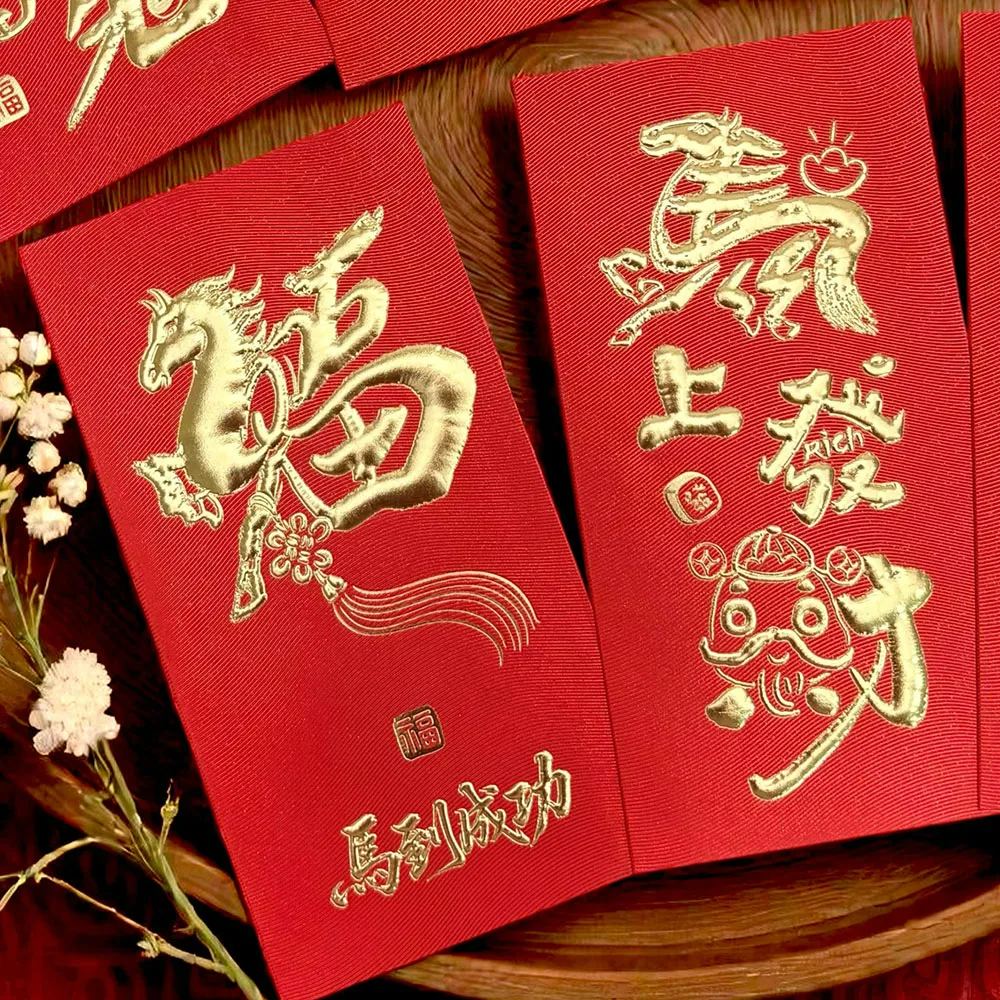 福
福
福
馬到成功
馬
上發
Rich
發
財